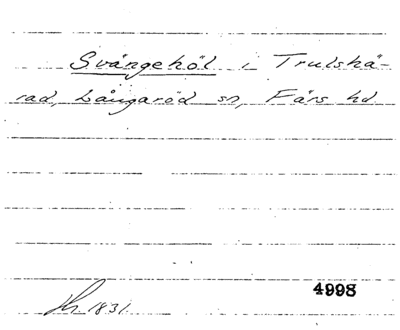 Svångehöl i Trulshä-
rad, Långaröd sn, Färs hd
4998
1831